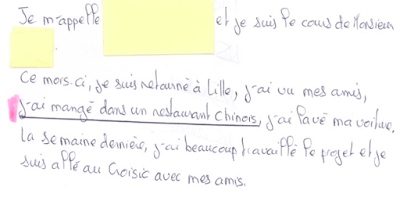 Je m'appelle et je suis le cours de Monsieur
.
Ce mois-ci, je suis retourné à Lille, j'ai vu mes amis,
j'ai mangé dans un restaurant Chinois, j'ai lavé ma voiture.
La semaine dernière, j'ai beaucoup travaillé le projet et je
suis allé au Croisic avec mes amis.